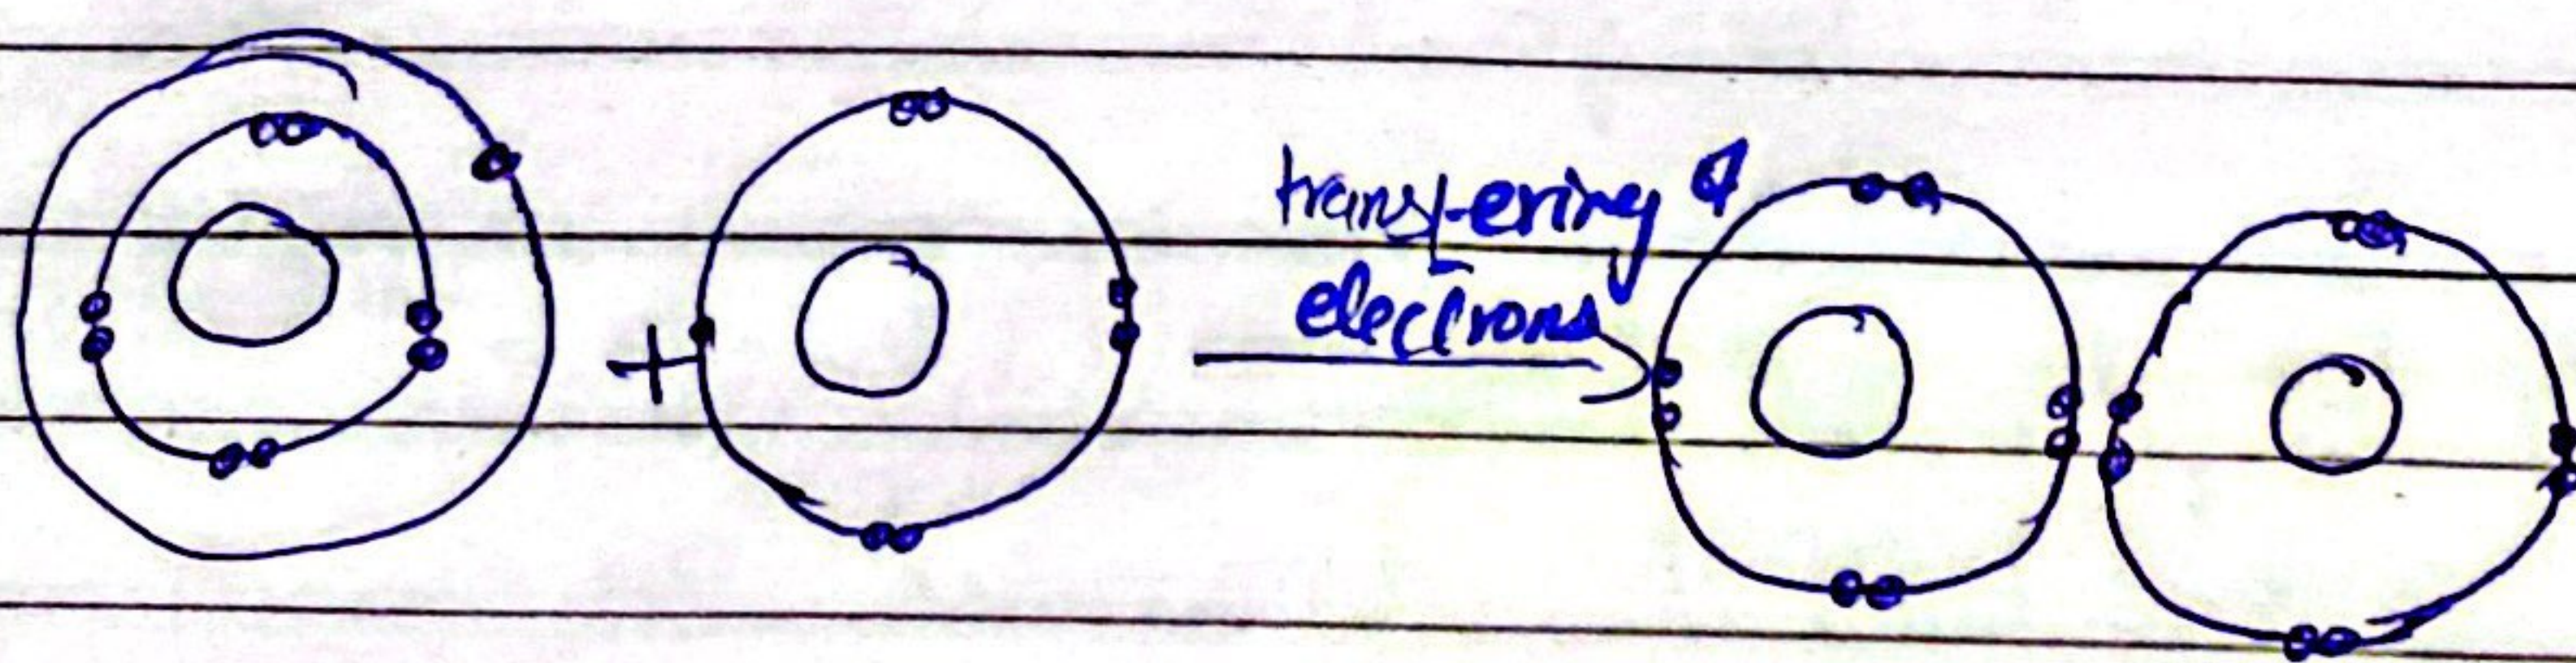 transfering of
electrons
+